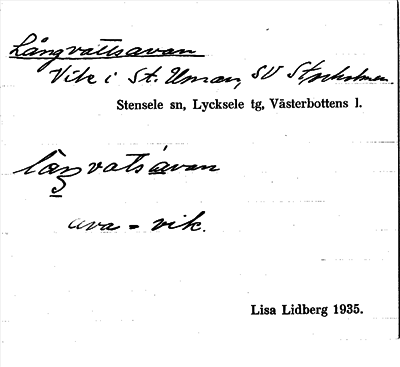 Långvattsavan
Vik i St. Uman, SV Stensholmen.
Stensele sn, Lycksele tg, Västerbottens l.
långvatsavan
ava = vik.
Lisa Lidberg 1935.